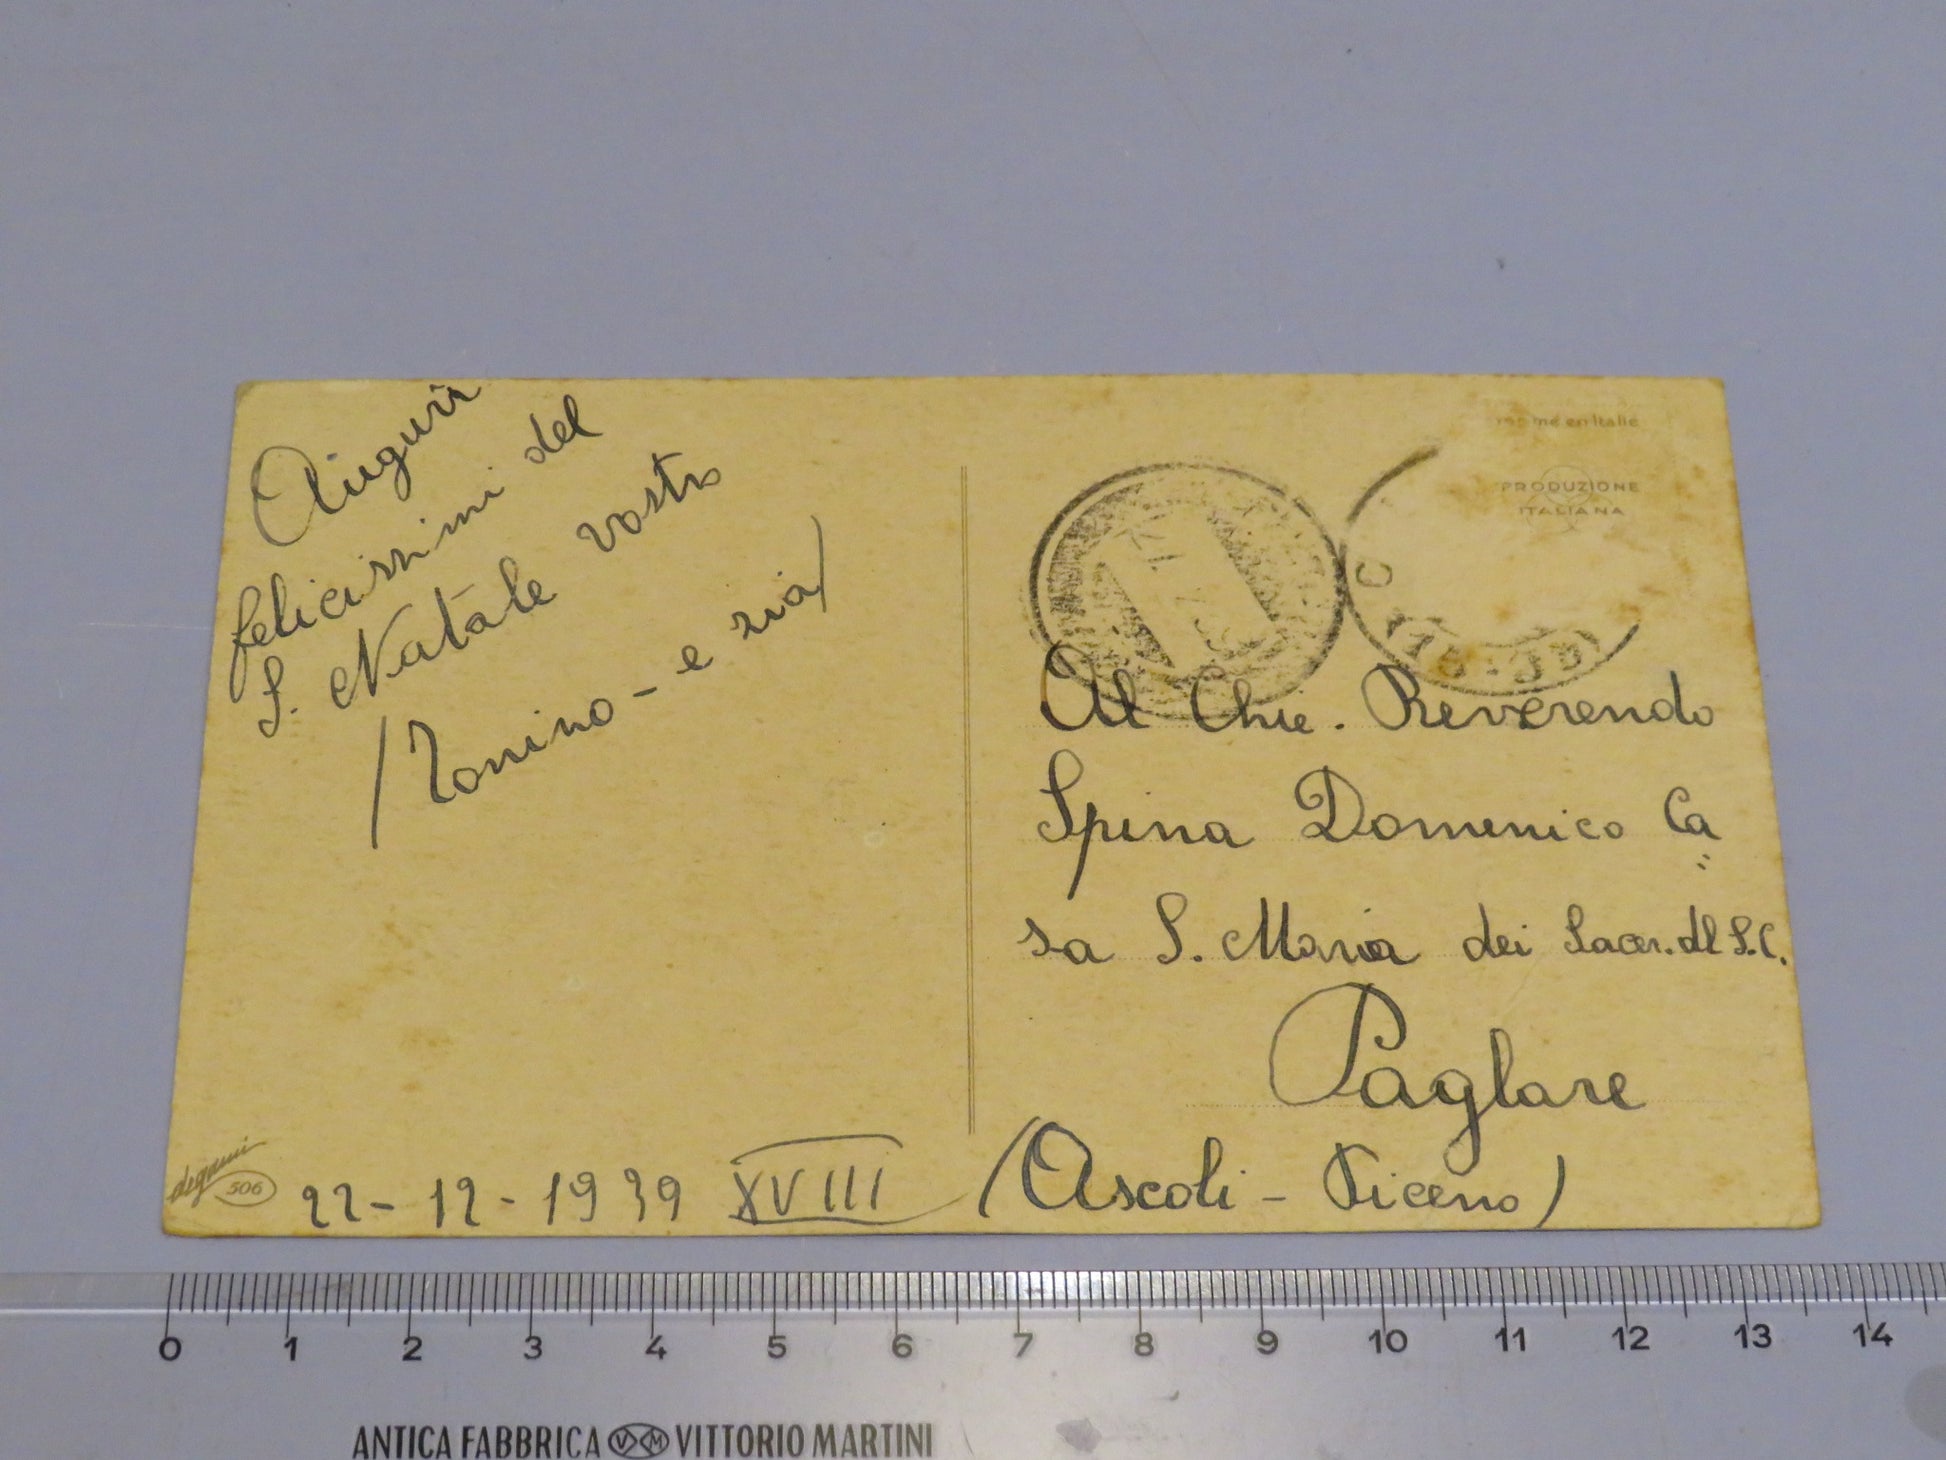 Auguri
felicissimi del
S. Natale vostro
(Tonino - e zia)
degami
506
22 - 12 - 1939 XVIII
PRODUZIONE
ITALIANA
en Italie
Al Chie. Reverendo
Spina Domenico Ca
sa S. Maria dei Sacer. dl S.C.
Paglare
(Ascoli - Piceno)
0 1 2 3 4 5 6 7 8 9 10 11 12 13 14
ANTICA FABBRICA VM VITTORIO MARTINI